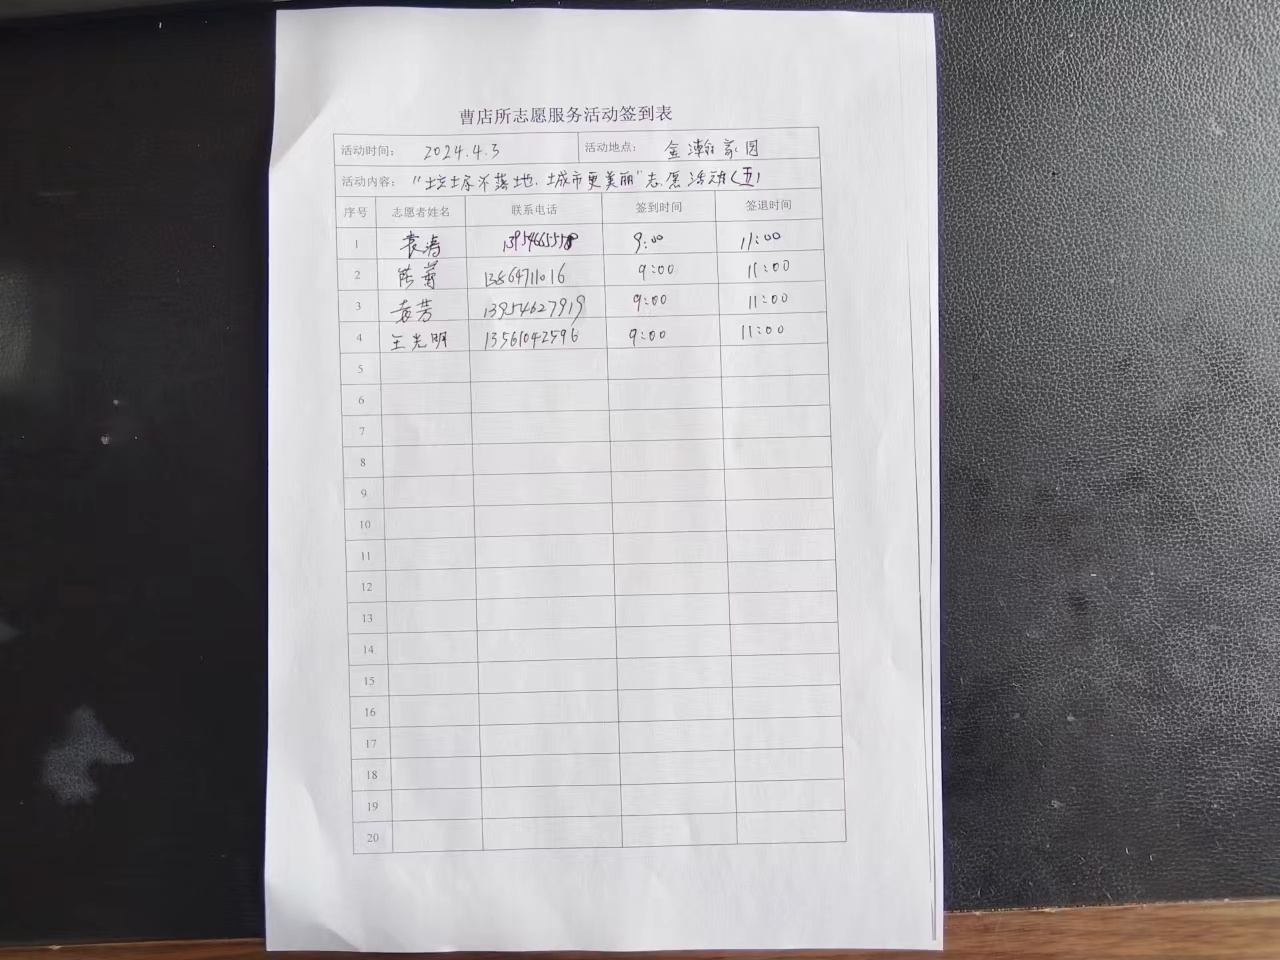 曹店所志愿服务活动签到表
活动时间： 2024.4.3 活动地点： 金瀚家园
活动内容： "垃圾不落地，城市更美丽"志愿活动（五）
序号 志愿者姓名 联系电话 签到时间 签退时间
1 袁涛 9:00 11:00
2 13864711016 9:00 11:00
3 袁芳 13954627919 9:00 11:00
4 王光明 13561042596 9:00 11:00
5
6
7
8
9
10
11
12
13
14
15
16
17
18
19
20